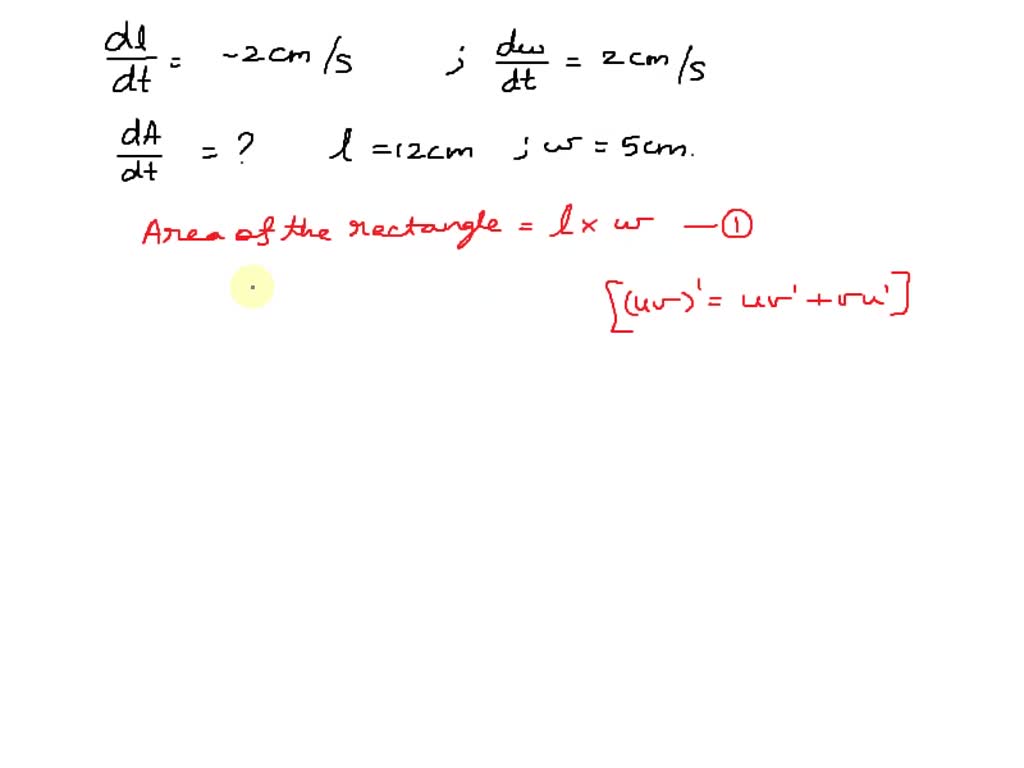 dl/dt = -2cm/s ; dw/dt = 2cm/s
dA/dt = ? l = 12cm ; w = 5cm.
Area of the rectangle = l × w —①
[(uv)' = uv' + vu']